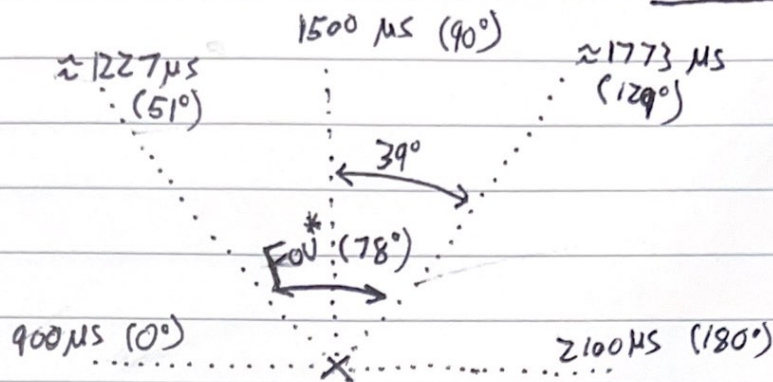 1500 μs (90°)
≈1227μs
(51°)
≈1773 μs
(129°)
39°
FOV* (78°)
900μs (0°)
2100μs (180°)